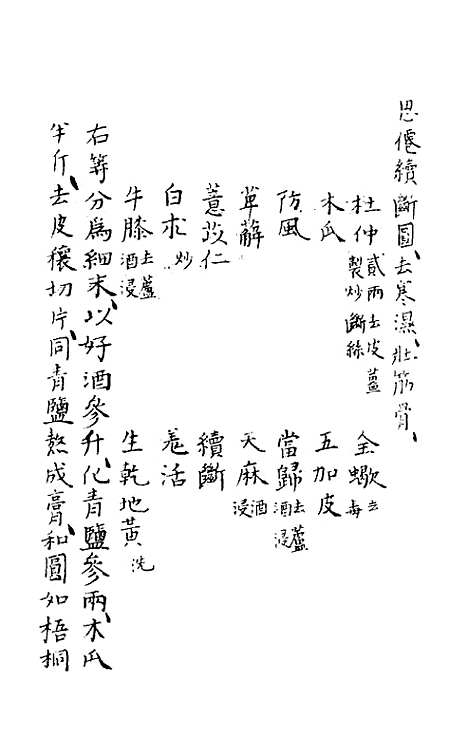 思僊續斷圓、去寒濕、壯筋骨、
杜仲 貳兩去皮薑製炒斷絲 全蠍 去毒
木瓜 五加皮
防風 當歸 去蘆酒浸
萆薢 天麻 酒浸
薏苡仁 續斷
白朮 炒 羗活
牛膝 去蘆酒浸 生乾地黃 洗
右等分爲細末、以好酒參升、化青鹽參兩、木瓜
半斤、去皮穰切片、同青鹽熬成膏、和圓如梧桐